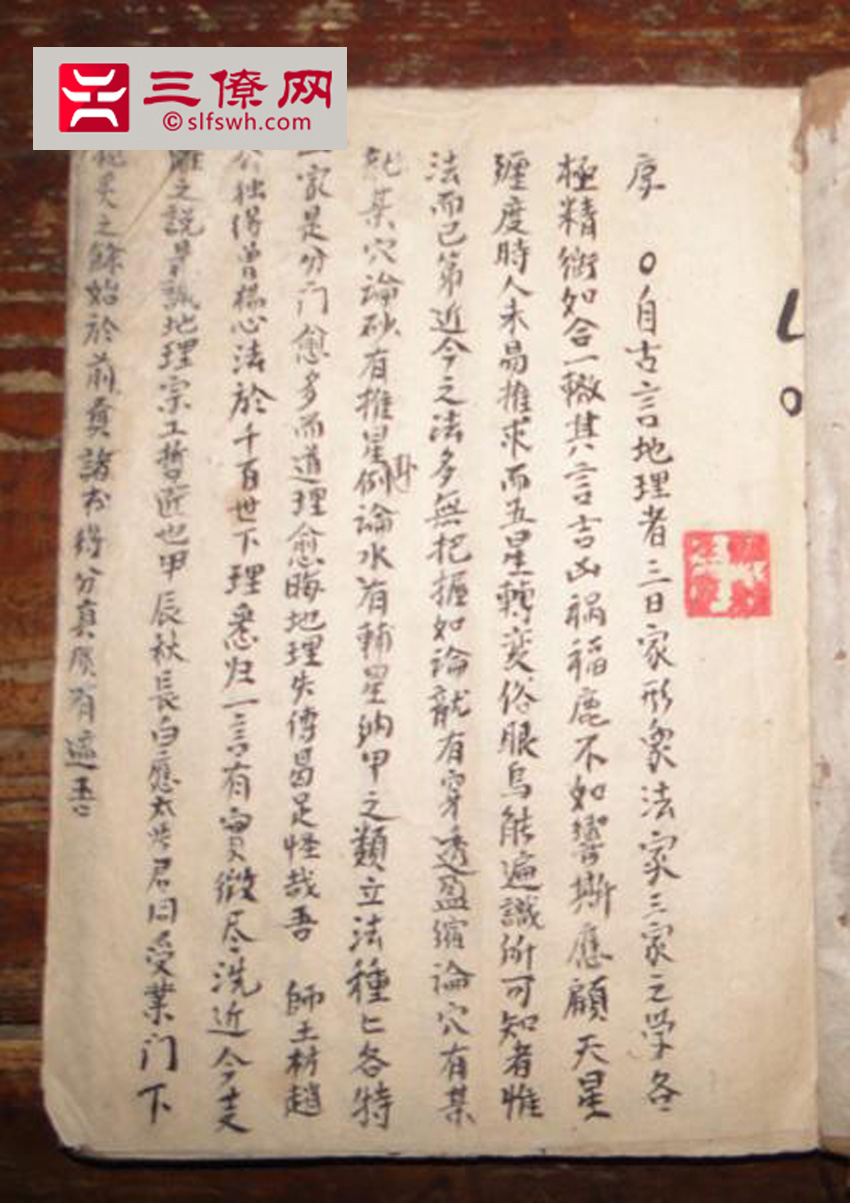 三僚网
©slfswh.com
序 〇自古言地理者三日家形象法家三家之学各
極精術如合一轍其言吉凶禍福鹿不如響斯應顧天星
躔度時人未易推求而五星轉变俗眼烏能遍識所可知者惟
法而已第近今之法多無把握如論龍有穿透盈缩論穴有某
龍某穴論砂有推星卦例論水有輔星纳甲之類立法種匕各特
一家是分门愈多而道理愈晦地理失傳曷足怪哉吾 師玉材趙
公独得曾楊心法於千百世下理悉归一言有實徵尽洗近今支
離之説算誠地理宗工哲匠也甲辰秋長白應太 君同受業门下
之餘始於前賢諸书得分真贋有 吾